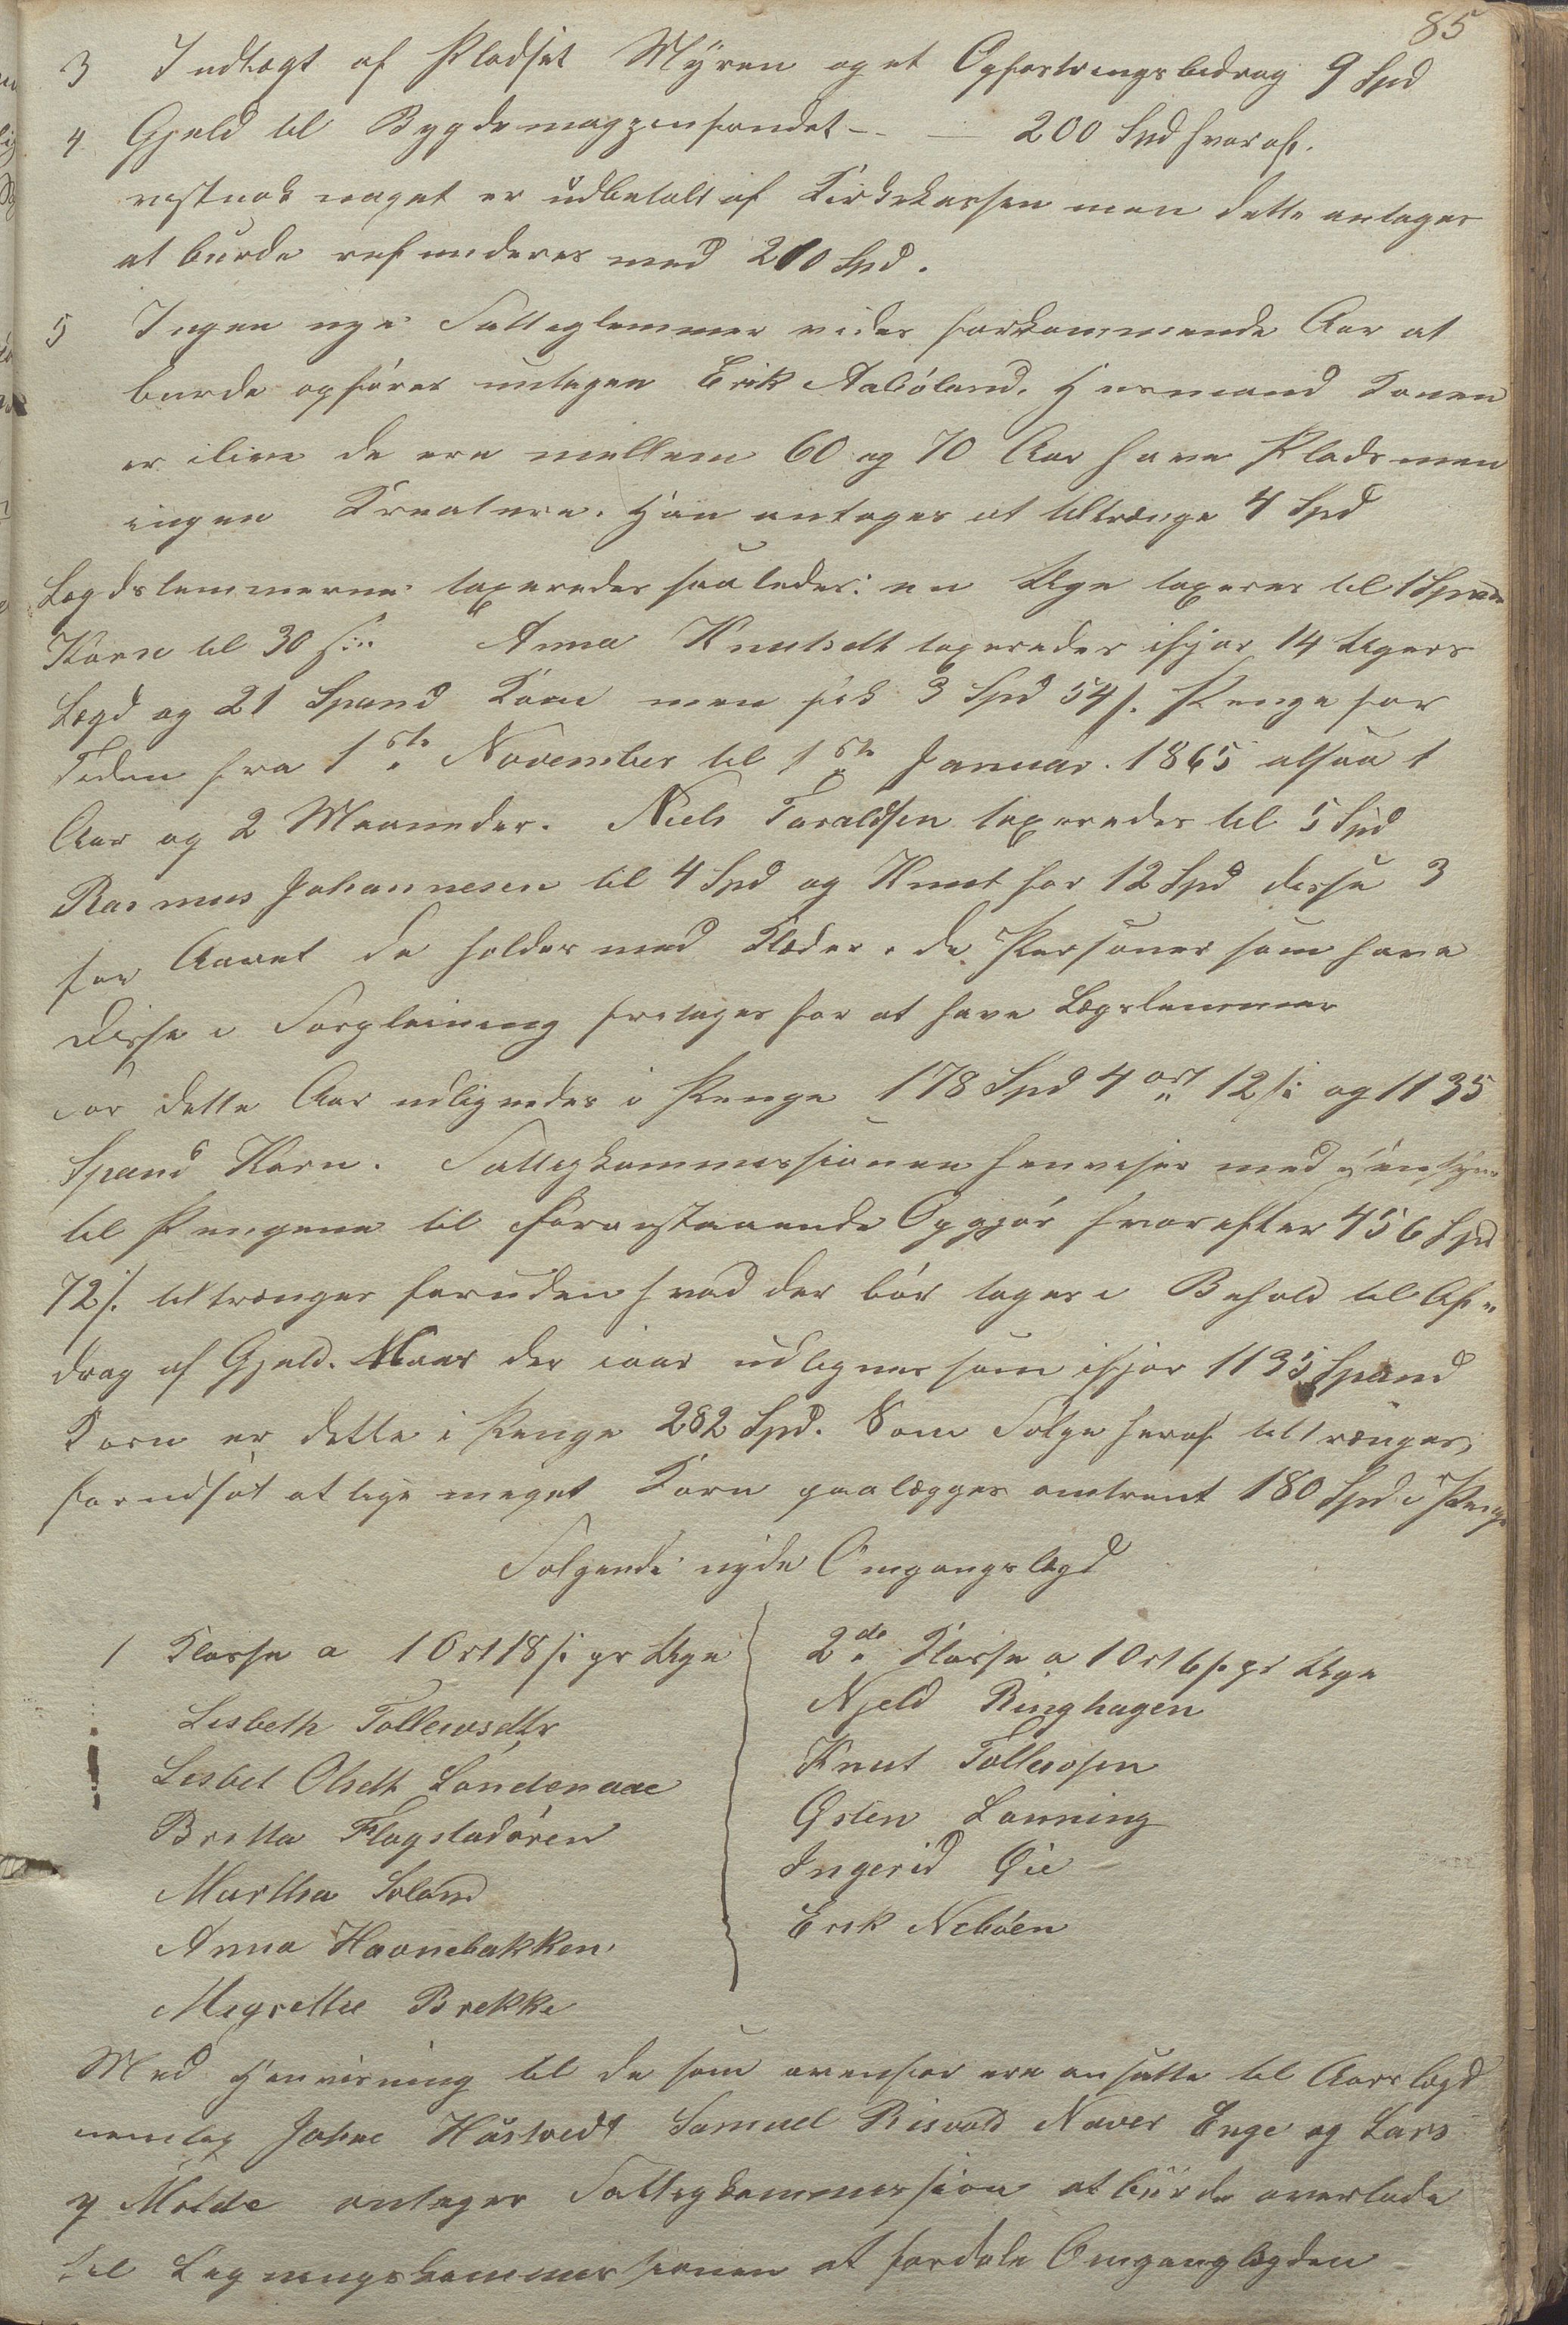 85
3 Indtægt af Pladset Mÿren og et Opfostringsbidrag 9 Spd
4 Gjeld til Bygdemagazinfondet - - — 200 Spd hvoraf.
vistnok noget er udbetalt af Kirkekassen men dette antages
at burde refunderes med 200 Spd.
5 Ingen nye Fattiglemmer vides forkommende Aar at
burde opføres untagen Erik Aabøland. Husmand Konen
er ilive de ere mellem 60 og 70 Aar have Plads men
ingen Kreature. Han antages at tiltrænge 4 Spd
Legdslemmerne taxeredes saaledes: en Uge taxeres til 1 Spand
Korn til 30 s. Anna Knutsdt taxeredes ifjor 14 Ugers
Legd og 21 Spand Korn men fik 3 Spd 54 s. Penge for
Tiden fra 1ste November til 1ste Januar. 1865 altsaa 1
Aar og 2 Maaneder. Niels Taraldsen taxeredes til 5 Spd
Rasmus Johannesen til 4 Spd og Knut for 12 Spd disse 3
for Aaret de holdes med Klæder. de Personer som have
disse i Forpleining fritages for at have Legslemmer
For dette Aar udlignedes i Penge 178 Spd 4 ort 12 s. og 1135
Spand Korn. Fattigkommissionen henviser med Hensyn
til Pengene til foranstaaende Opgjør hvorefter 456 Spd
72 s. tiltrænges foruden hvad der bør tages i Behold til Af-
drag af Gjeld. Naar der iaar udlignes som ifjor 1135 Spand
Korn er dette i Penge 282 Spd. Som Følge heraf tiltrænges
forudsat at lige meget Korn paalægges omtrent 180 Spd i Penge
Følgende nyde Omgangslegd
1 Klasse a 1 Ort 18 s. pr Uge
Lisbeth Tollevsdtr
Lisbet Olsdt Landenaae
Britta Flagstadøren
Martha Soland
Anna Haanebakken
Megrettee Brekke
2de Klasse a 1 Ort 6 s. pr Uge
Njeld Ringhagen
Knut Tollevsen
Østen Lanning
Ingerid Øie
Erik Nebøen
Med Henvisning til de som ovenfor ere ansatte til Aarslegd
nemlig Johne Håstvedt Samuel Risvold Naver Enge og Lars
y Molde antager Fattigkommission at burde overlade
til Legningskommissionen at fordele Omganglegden